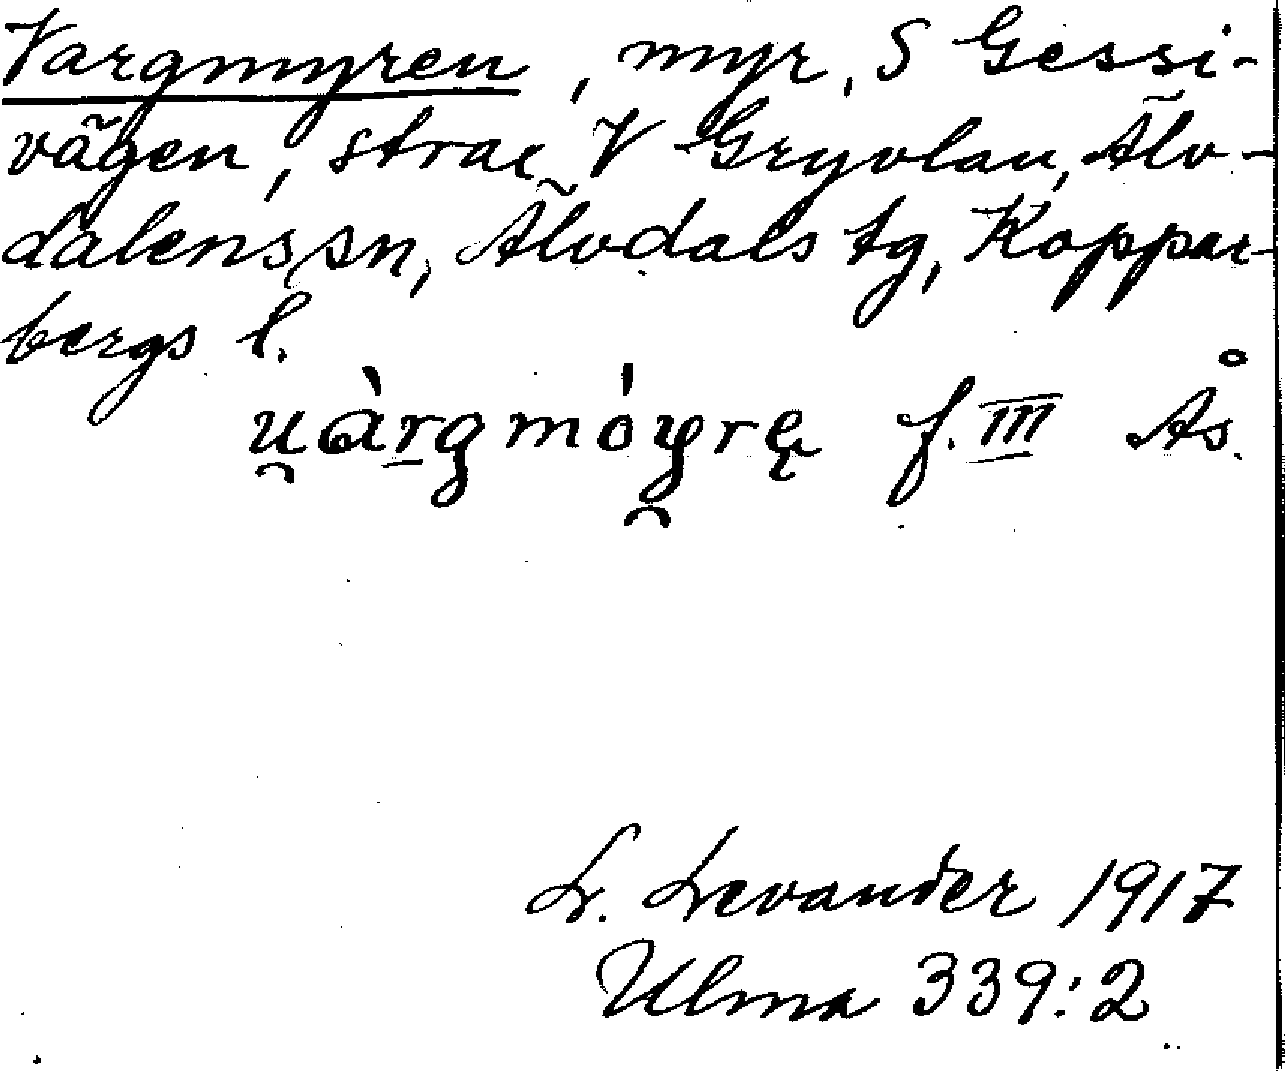 Vargmyren, myr, S Gessi-
vägen, strax V Gryvlan, Älv-
dalens sn, Älvdals tg, Koppar-
bergs l.
u̯àrgmóy̯rę f. III Ås.
L. Levander 1917
Ulma 339:2